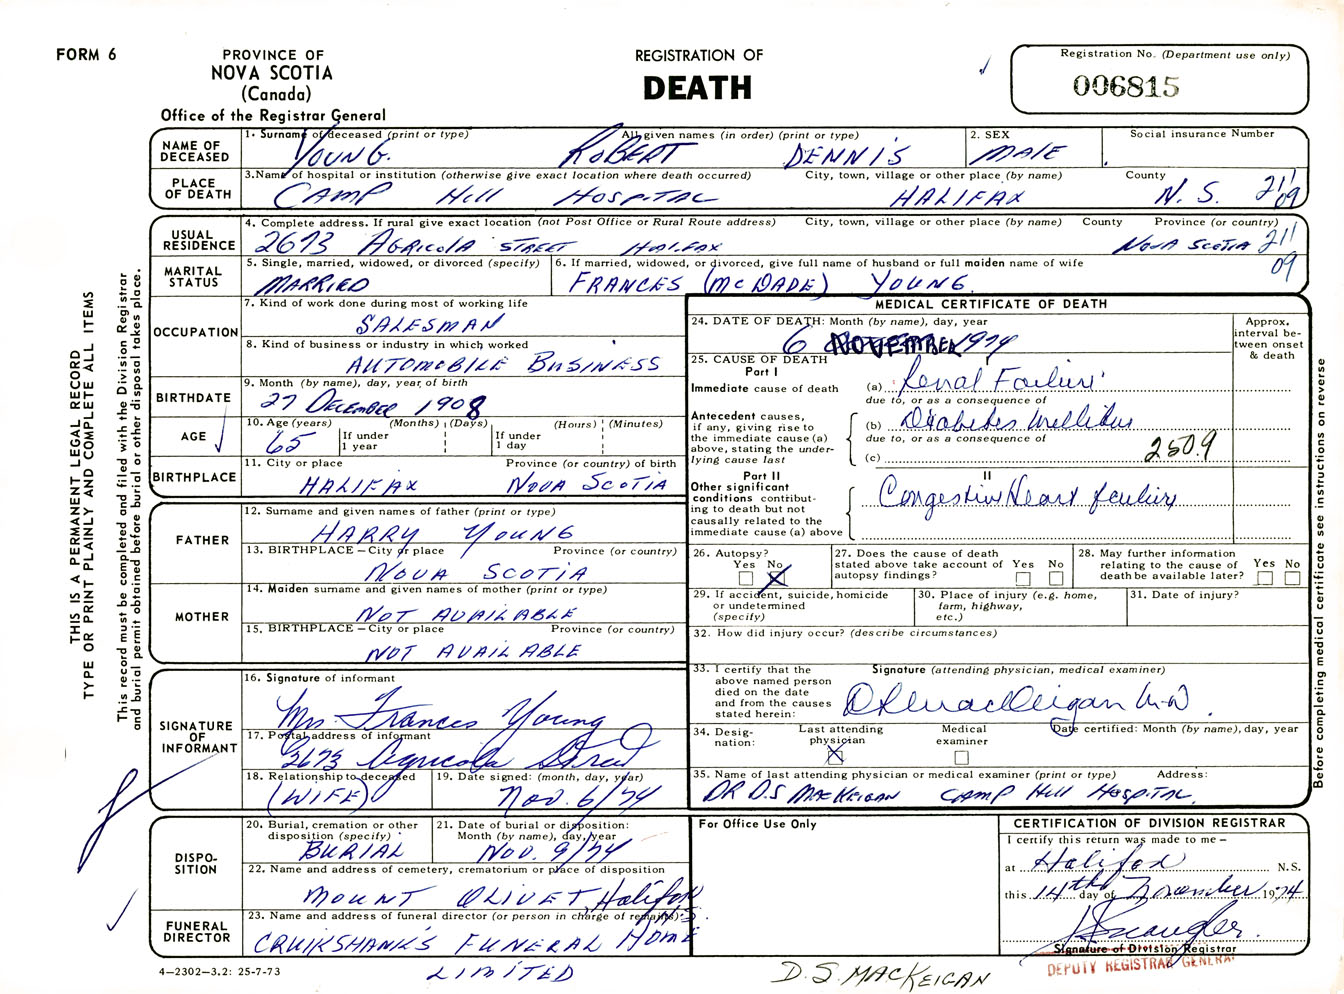 FORM 6
PROVINCE OF
NOVA SCOTIA
(Canada)
Office of the Registrar General
REGISTRATION OF
DEATH
Registration No. (Department use only)
006815
THIS IS A PERMANENT LEGAL RECORD
TYPE OR PRINT PLAINLY AND COMPLETE ALL ITEMS
This record must be completed and filed with the Division Registrar
and burial permit obtained before burial or other disposal takes place.
NAME OF DECEASED
1. Surname of deceased (print or type) All given names (in order) (print or type) 2. SEX Social insurance Number
YOUNG. ROBERT DENNIS MALE
PLACE OF DEATH
3. Name of hospital or institution (otherwise give exact location where death occurred) City, town, village or other place (by name) County
CAMP Hill HOSPITAL HALIFAX N.S. 211 09
USUAL RESIDENCE
4. Complete address. If rural give exact location (not Post Office or Rural Route address) City, town, village or other place (by name) County Province (or country)
2673 AGRICOLA STREET HALIFAX NOVA SCOTIA 211 09
MARITAL STATUS
5. Single, married, widowed, or divorced (specify) 6. If married, widowed, or divorced, give full name of husband or full maiden name of wife
MARRIED FRANCES (McDADE) YOUNG.
OCCUPATION
7. Kind of work done during most of working life
SALESMAN
8. Kind of business or industry in which worked
AUTOMOBILE BUSINESS
BIRTHDATE
9. Month (by name), day, year, of birth
27 DECEMBER 1908
AGE
10. Age (years) (Months) (Days) (Hours) (Minutes)
65 If under 1 year If under 1 day
BIRTHPLACE
11. City or place Province (or country) of birth
HALIFAX NOVA SCOTIA
FATHER
12. Surname and given names of father (print or type)
HARRY YOUNG
13. BIRTHPLACE – City or place Province (or country)
NOVA SCOTIA
MOTHER
14. Maiden surname and given names of mother (print or type)
NOT AVAILABLE
15. BIRTHPLACE – City or place Province (or country)
NOT AVAILABLE
SIGNATURE OF INFORMANT
16. Signature of informant
Mrs Frances Young
17. Postal address of informant
2673 Agricola Street
18. Relationship to deceased 19. Date signed: (month, day, year)
(WIFE) Nov. 6/74
DISPO-SITION
20. Burial, cremation or other disposition (specify) 21. Date of burial or disposition: Month (by name), day, year
BURIAL NOV. 9/74
22. Name and address of cemetery, crematorium or place of disposition
MOUNT OLIVET, Halifax N.S.
FUNERAL DIRECTOR
23. Name and address of funeral director (or person in charge of remains):
CRUIKSHANK'S FUNERAL HOME
LIMITED
4–2302–3.2: 25-7-73
MEDICAL CERTIFICATE OF DEATH
24. DATE OF DEATH: Month (by name), day, year
6 NOVEMBER 1974
Approx. interval be-tween onset & death
25. CAUSE OF DEATH
Part I
Immediate cause of death (a) Renal Failure
due to, or as a consequence of
Antecedent causes, if any, giving rise to the immediate cause (a) above, stating the under-lying cause last
(b) Diabetes Mellitus
due to, or as a consequence of
(c) 250.9
Part II
Other significant conditions contribut-ing to death but not causally related to the immediate cause (a) above
II
Congestive Heart failure
26. Autopsy? Yes No
27. Does the cause of death stated above take account of autopsy findings? Yes No
28. May further information relating to the cause of death be available later? Yes No
29. If accident, suicide, homicide or undetermined (specify)
30. Place of injury (e.g. home, farm, highway, etc.)
31. Date of injury?
32. How did injury occur? (describe circumstances)
33. I certify that the above named person died on the date and from the causes stated herein:
Signature (attending physician, medical examiner)
DS MacKeigan M.D.
34. Desig-nation: Last attending physician Medical examiner Date certified: Month (by name), day, year
35. Name of last attending physician or medical examiner (print or type) Address:
DR D.S MACKEIGAN CAMP Hill HOSPITAL.
Before completing medical certificate see instructions on reverse
For Office Use Only
CERTIFICATION OF DIVISION REGISTRAR
I certify this return was made to me –
at Halifax N.S.
this 14th day of November 1974
Signature of Division Registrar
DEPUTY REGISTRAR GENERAL
D.S. MACKEIGAN